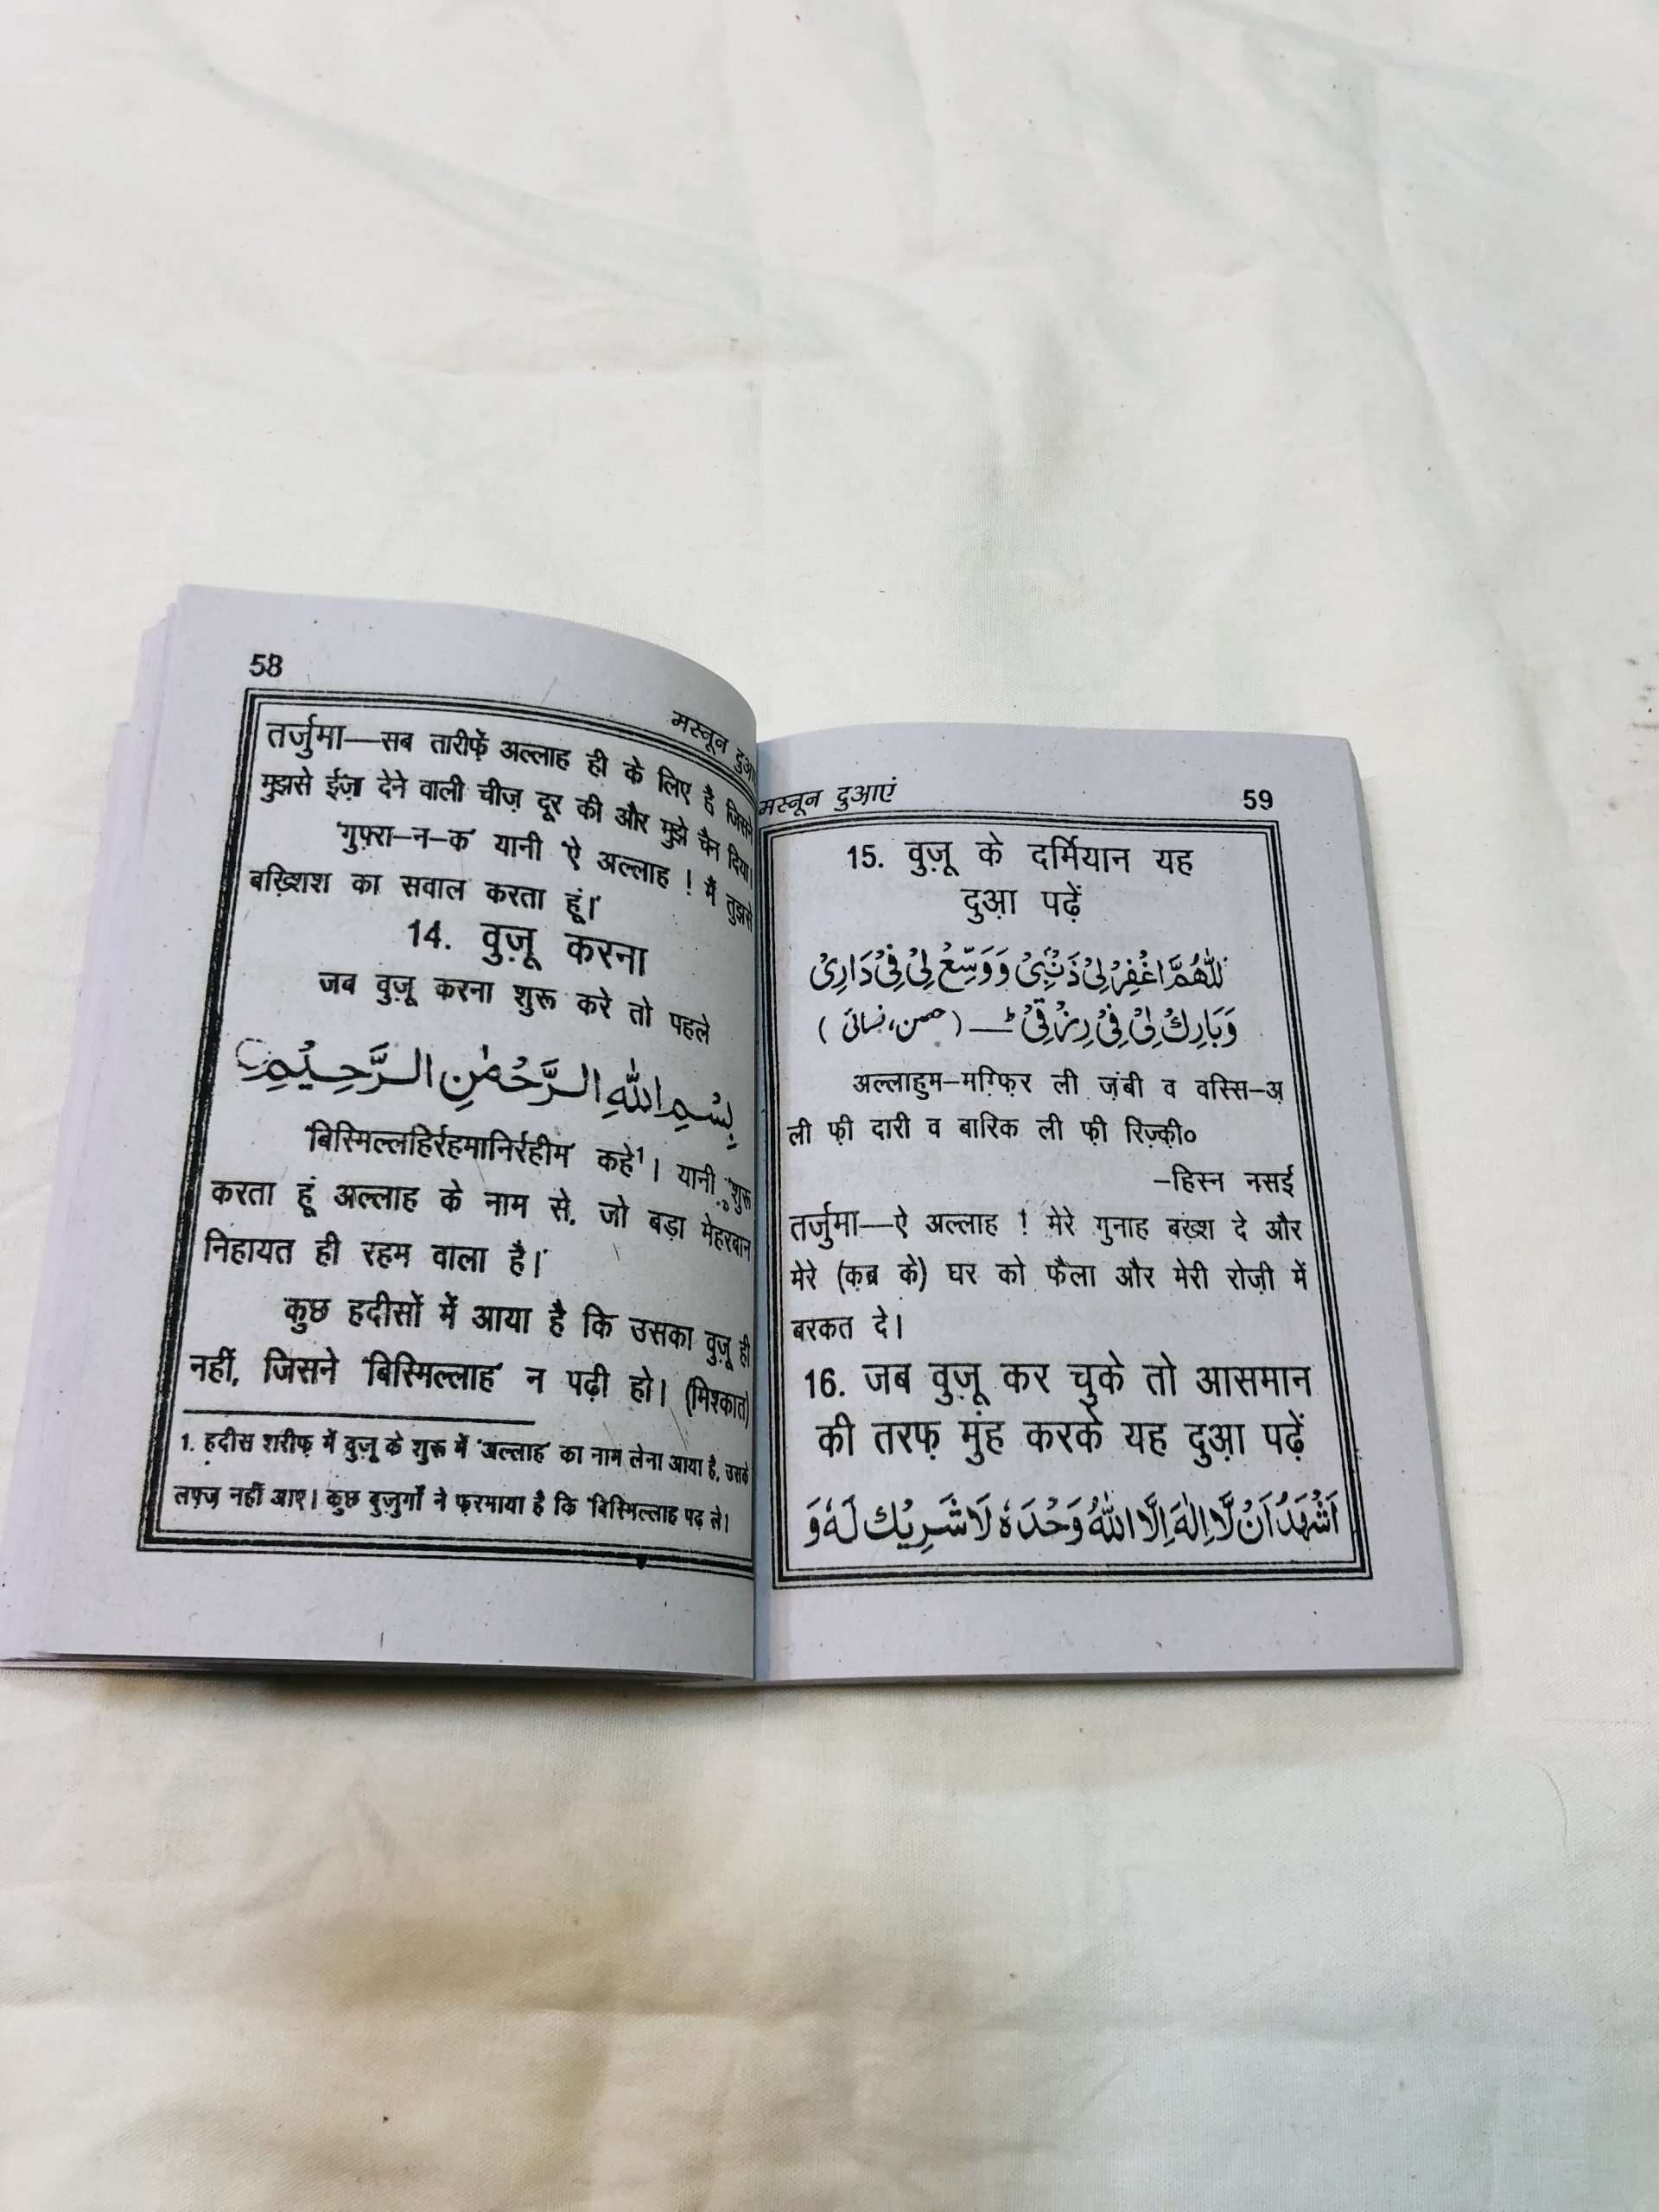 58
मस्नून दुआ
तर्जुमा—सब तारीफ़ें अल्लाह ही के लिए है जिसने
मुझसे ईज़ा देने वाली चीज़ दूर की और मुझे चैन दिया।
'गुफ़्रा-न-क' यानी 'ऐ अल्लाह ! मैं तुझसे
बख़्शिश का सवाल करता हूं।'
14. वुज़ू करना
जब वुज़ू करना शुरू करे तो पहले
بِسْمِ اللّٰهِ الرَّحْمٰنِ الرَّحِيْمِ
'बिस्मिल्लहिर्रहमानिर्रहीम' कहे¹। यानी 'शुरू
करता हूं अल्लाह के नाम से, जो बड़ा मेहरबान
निहायत ही रहम वाला है।'
कुछ हदीसों में आया है कि उसका वुज़ू ही
नहीं, जिसने 'बिस्मिल्लाह' न पढ़ी हो। (मिश्कात)
1. हदीस शरीफ़ में वुज़ू के शुरू में 'अल्लाह' का नाम लेना आया है, उसके
लफ़्ज़ नहीं आए। कुछ बुज़ुर्गों ने फ़रमाया है कि 'बिस्मिल्लाह पढ़ ले।
मस्नून दुआ़एं
59
15. वुज़ू के दर्मियान यह
दुआ़ पढ़ें
للّٰهُمَّ اغْفِرْ لِیْ ذَنْۢبِیْ وَوَسِّعْ لِیْ فِیْ دَارِیْ
وَبَارِكْ لِیْ فِیْ رِزْقِیْ ط — (حصن، نسائی)
अल्लाहुम-मग़्फ़िर ली ज़ंबी व वस्सि-अ़
ली फ़ी दारी व बारिक ली फ़ी रिज़्क़ी०
-हिस्न नसई
तर्जुमा—ऐ अल्लाह ! मेरे गुनाह बख़्श दे और
मेरे (क़ब्र के) घर को फैला और मेरी रोज़ी में
बरकत दे।
16. जब वुज़ू कर चुके तो आसमान
की तरफ़ मुंह करके यह दुआ़ पढ़ें
اَشْهَدُ اَنْ لَّا اِلٰهَ اِلَّا اللّٰهُ وَحْدَهٗ لَا شَرِيْكَ لَهٗ وَ